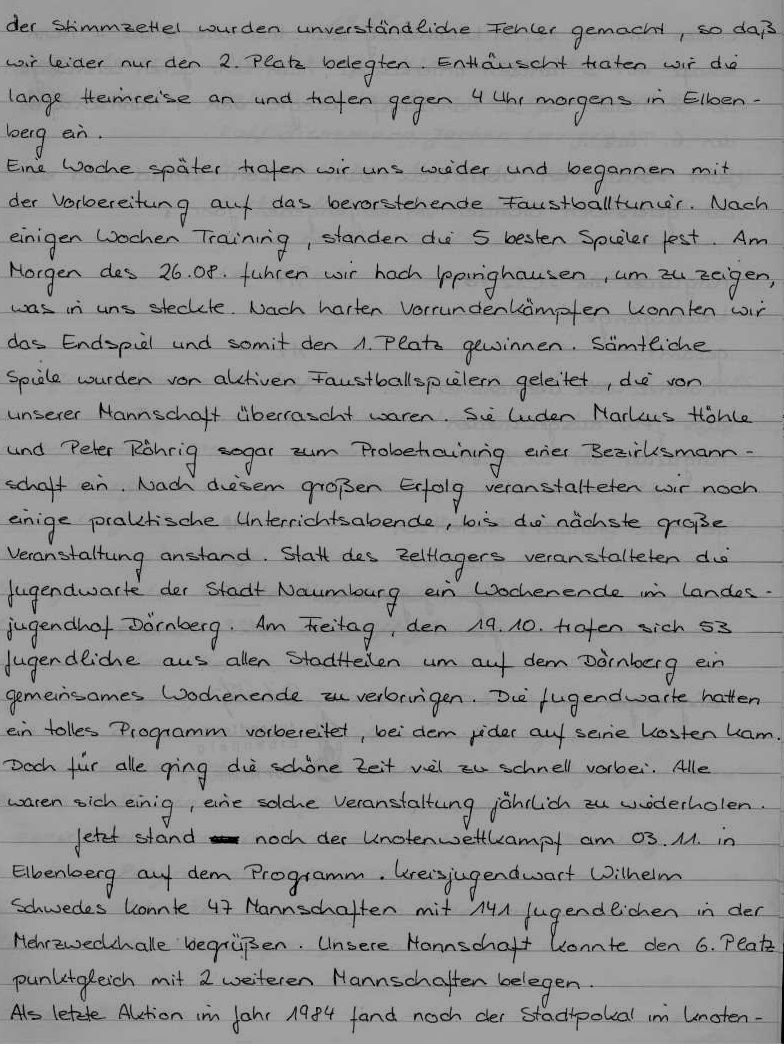 der Stimmzettel wurden unverständliche Fehler gemacht, so daß
wir leider nur den 2. Platz belegten. Enttäuscht traten wir die
lange Heimreise an und trafen gegen 4 Uhr morgens in Elben-
berg ein.
Eine Woche später trafen wir uns wieder und begannen mit
der Vorbereitung auf das bevorstehende Faustballtunier. Nach
einigen Wochen Training, standen die 5 besten Spieler fest. Am
Morgen des 26.08. fuhren wir nach Ippinghausen, um zu zeigen,
was in uns steckte. Nach harten Vorrundenkämpfen konnten wir
das Endspiel und somit den 1. Platz gewinnen. Sämtliche
Spiele wurden von aktiven Faustballspielern geleitet, die von
unserer Mannschaft überrascht waren. Sie luden Markus Höhle
und Peter Röhrig sogar zum Probetraining einer Bezirksmann-
schaft ein. Nach diesem großen Erfolg veranstalteten wir noch
einige praktische Unterrichtsabende, bis die nächste große
Veranstaltung anstand. Statt des Zeltlagers veranstalteten die
Jugendwarte der Stadt Naumburg ein Wochenende im Landes-
jugendhof Dörnberg. Am Freitag, den 19.10. trafen sich 53
Jugendliche aus allen Stadtteilen um auf dem Dörnberg ein
gemeinsames Wochenende zu verbringen. Die Jugendwarte hatten
ein tolles Programm vorbereitet, bei dem jeder auf seine Kosten kam.
Doch für alle ging die schöne Zeit viel zu schnell vorbei. Alle
waren sich einig, eine solche Veranstaltung jährlich zu wiederholen.
Jetzt stand noch der Knotenwettkampf am 03.11. in
Elbenberg auf dem Programm. Kreisjugendwart Wilhelm
Schwedes konnte 47 Mannschaften mit 141 Jugendlichen in der
Mehrzweckhalle begrüßen. Unsere Mannschaft konnte den 6. Platz
punktgleich mit 2 weiteren Mannschaften belegen.
Als letzte Aktion im Jahr 1984 fand noch der Stadtpokal im Knoten-